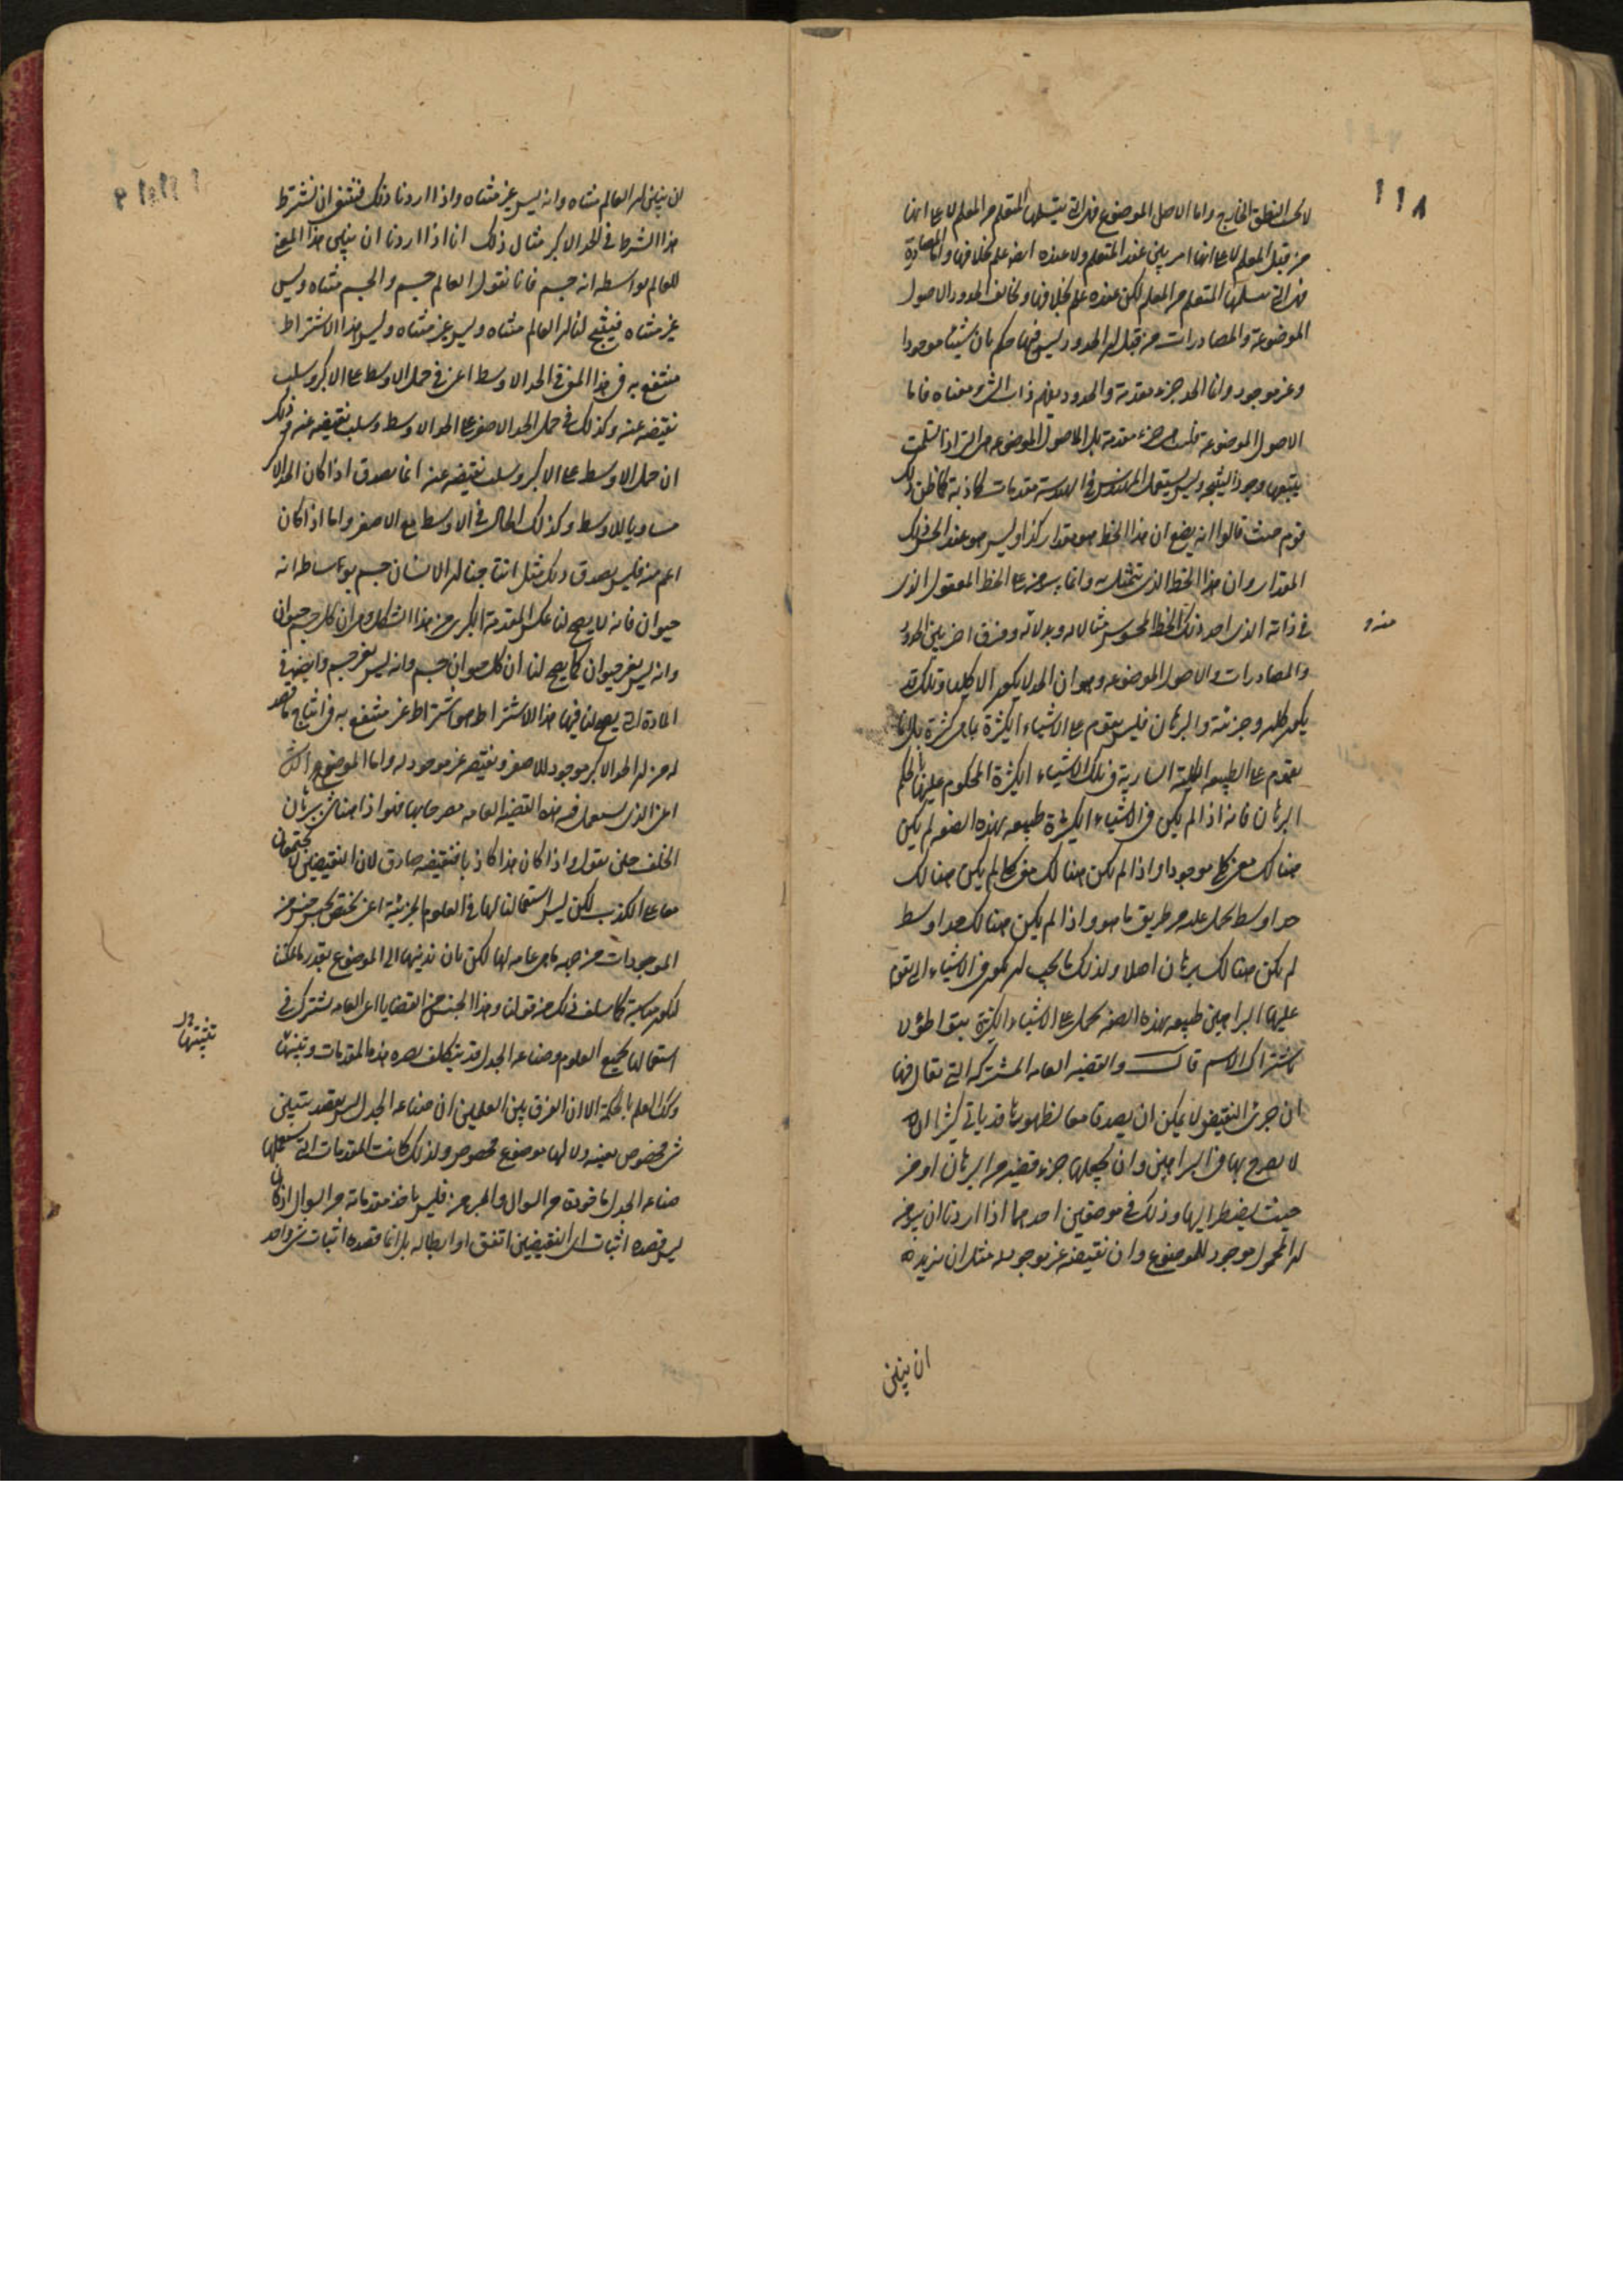 ١١٨
لا كل النطق الخارج واما الاصل الموضوع فهو التي يتسلمها المتعلم من المعلم لا على انها
من قبل المعلم لا على انها امر بين عند المتعلم ولا عنده ايضا علم بخلافها واما المصادرة
فهي التي يتسلمها المتعلم من المعلم لكن عنده علم بخلافها وتخالف الحدود الاصول
الموضوعة والمصادرات من قبل ان الحدود ليس فيها حكم بان شيئا موجودا
وغير موجود وانما الحد جزء مقدمة والحدود يفهم ذات الشي ومعناه فاما
الاصول الموضوعة فليست جزء مقدمة بل الاصول الموضوعة هي التي اذا تسلمت
يتبعها وجود النتيجة وليس يستعمل المهندس في الهندسة مقدمات كاذبة كما ظن ذلك
قوم حيث قالوا انه يضع ان هذا الخط هو مقدار كذا وليس هو عند الحس ذلك
المقدار وان هذا الخط الذي يتمثل به وانما يبرهن على الخط المعقول الذي
في ذاته الذي احد ذلك الخط المحسوس مثالا له وبدلا منه وفرق اخر بين الحدود
والمصادرات والاصول الموضوعة وهو ان الحد لا يكون الا كليا وتلك قد
يكون كلية وجزئية والبرهان فليس يقوم على الاشياء الكثيرة بما هي كثيرة بل انما
يقوم على الطبيعة الكلية السارية في تلك الاشياء الكثيرة المحكوم عليها بالحكم
البرهان فانه اذا لم يكن في الاشياء الكثيرة طبيعة بهذه الصفة لم يكن
هنالك معنى كلي موجودا واذا لم يكن هنالك معنى كلي لم يكن هنالك
حد اوسط يحمل عليه من طريق ما هو واذا لم يكن هنالك حد اوسط
لم يكن هنالك برهان اصلا ولذلك ما يجب ان يكون في الاشياء التي تقوم
عليها البراهين طبيعة بهذه الصفة تحمل على الاشياء الكثيرة بتواطؤ لا
باشتراك الاسم قال والقضية العامة المشتركة التي يقال فيها
ان جزئي النقيض لا يمكن ان يصدقا معا لظهورها قد ياتي كثيرا الا
لا يصرح بها في البراهين وان يجعلها جزء قضية من البرهان او من
حيث يضطر اليها وذلك في موضعين احدهما اذا اردنا ان نبرهن
ان المحمول موجود للموضوع وان نقيضه غير موجود له مثل ان نريد
ان يبين
ان نبين ان العالم متناه وانه ليس غير متناه واذا اردنا ذلك فينبغي ان نشترط
هذا الشرط في الحد الاكبر مثال ذلك انا اذا اردنا ان نبين هذا المعنى
للعالم بواسطة انه جسم فانا نقول العالم جسم والجسم متناه وليس
غير متناه فينتج لنا ان العالم متناه وليس غير متناه وليس هذا الاشتراط
منتفع به في هذا المعنى في الحد الاوسط اعني في حمل الاوسط على الاكبر وسلب
نقيضه عنه وكذلك في حمل الحد الاصغر على الحد الاوسط وسلب نقيضه عنه وذلك
ان حمل الاوسط على الاكبر وسلب نقيضه عنه انما يصدق اذا كان الحد الاكبر
مساويا للاوسط وكذلك الحال في الاوسط مع الاصغر واما اذا كان
اعم منه فليس يصدق ذلك مثل انتاجنا ان الانسان جسم بوساطة انه
حيوان فانه لا يصح لنا عكس المقدمة الكبرى من هذا الشكل وهو ان كل جسم حيوان
وانه ليس بغير حيوان كما يصح لنا ان كل حيوان جسم وانه ليس بغير جسم وايضا في
المادة التي يصح لنا فيها هذا الاشتراط هو اشتراط غير منتفع به في انتاج ما قصد
له من ان الحد الاكبر موجود للاصغر ونقيضه غير موجود له واما الموضع الثاني
اعني الذي يستعمل فيه هذه القضية العامة مصرحا بها فهو اذا استعملنا برهان
الخلف حين نقول واذا كان هذا كاذبا فنقيضه صادق لان النقيضين لا يجتمعان
معا على الكذب لكن ليس استعمالنا لها في العلوم الجزئية اعني تختص بجنس جنس من
الموجودات من جهة ما هي عامة لها لكن بان ندنيها الى الموضوع بقدر ما يمكننا
لتكون مناسبة كما سلف ذلك من قولنا وهذا الجنس من القضايا اعني العامة يشترك في
استعمالها جميع العلوم وصناعة الجدل قد يتكلف نصرة هذه المقدمات وتثبيتها
وكذا العلم بالحكمة الا ان الفرق بين العلمين ان صناعة الجدل ليس بقصد تبين
شي مخصوص بعينه ولا لها موضوع مخصوص ولذلك كانت المقدمات التي تستعملها
صناعة الجدل ماخوذة من السوال والمبرهن فليس ياخذ مقدماته من السوال اذ كان
ليس قصده اثبات اي النقيضين اتفق او ابطاله بل انما قصده اثبات شي واحد